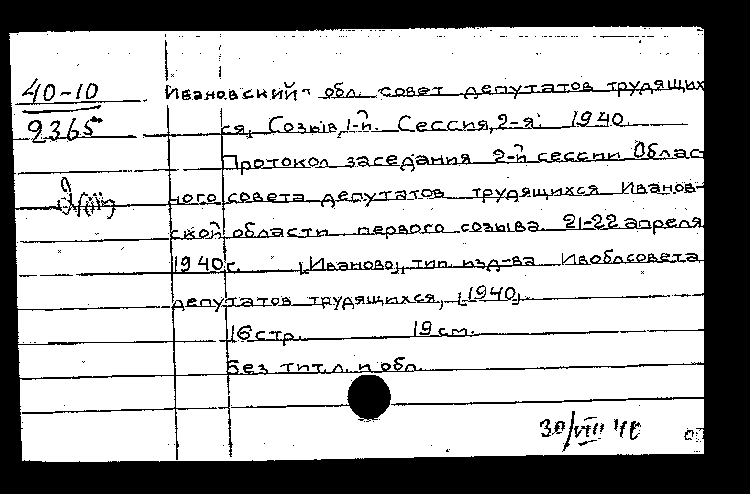 40-10
2365
Ивановский обл. совет депутатов трудящих
ся, Созыв, 1-й. Сессия, 2-я. 1940
Протокол заседания 2-й сессии Облас
ного совета депутатов трудящихся Иванов-
ской области первого созыва. 21-22 апреля
1940г. [Иваново], тип. изд-ва Ивоблсовета
депутатов трудящихся, [1940].
16 стр. 19 см.
Без тит. л. и обл.
30/VIII 40